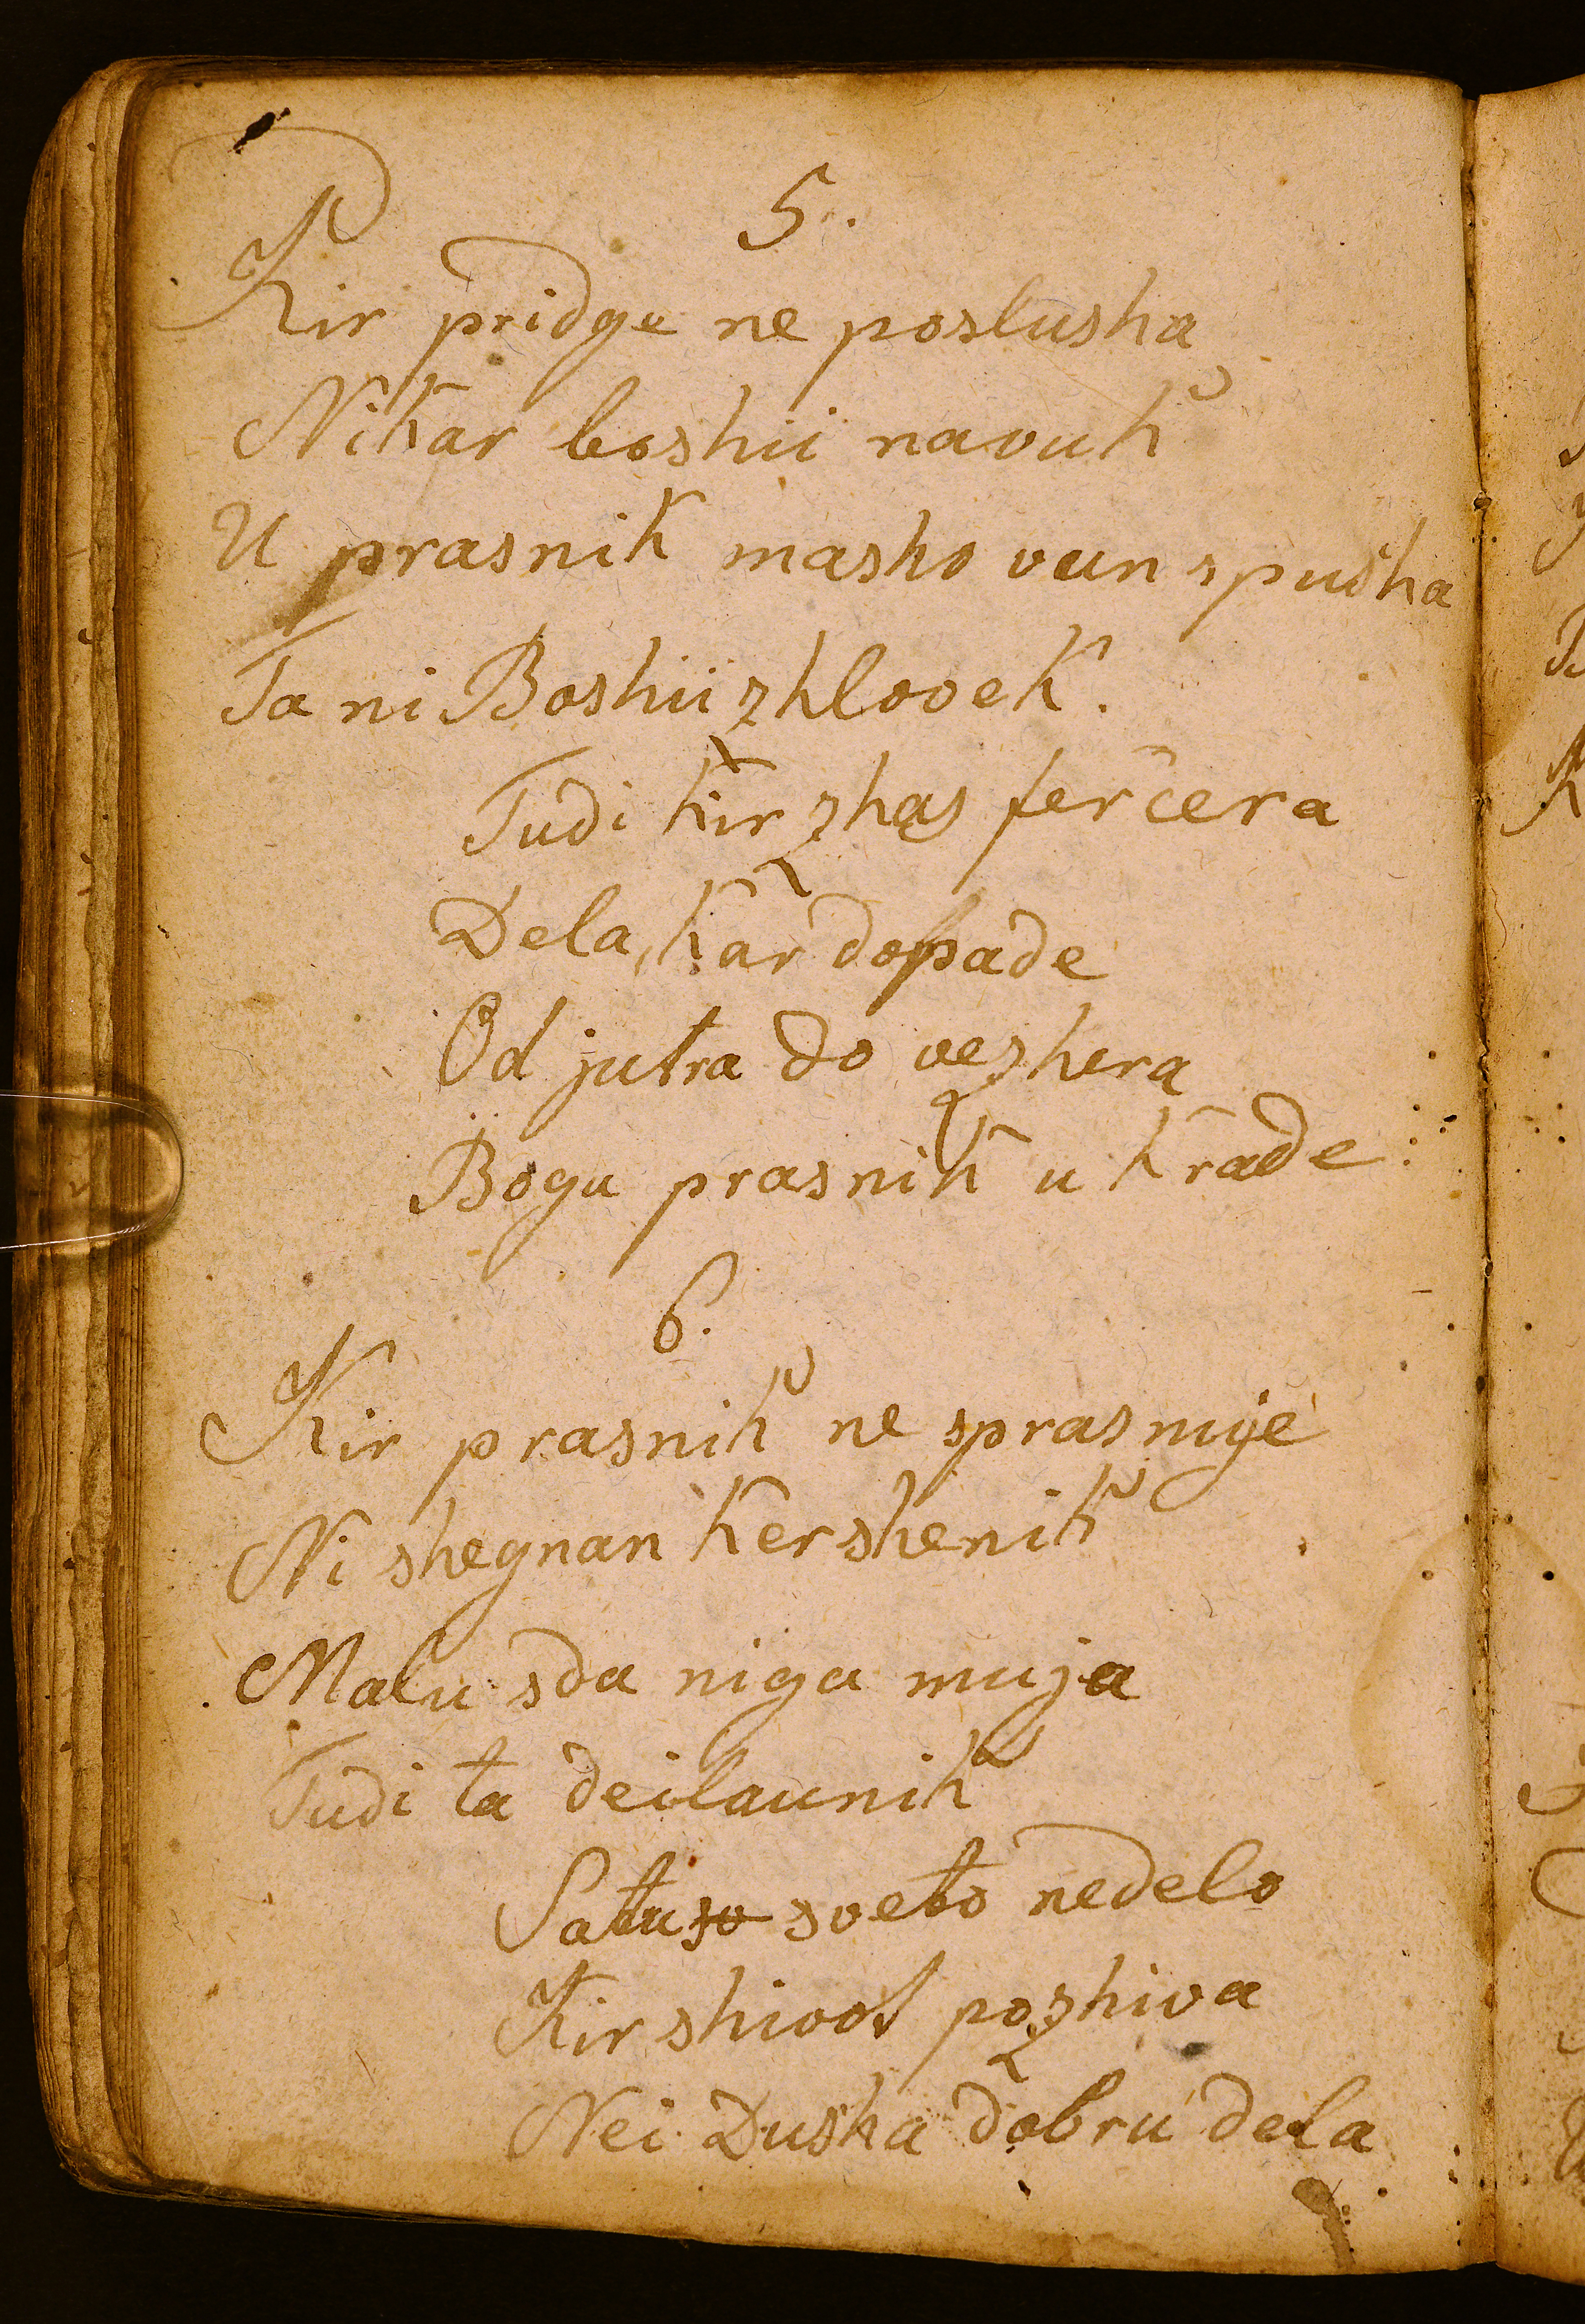 5.
Kir pridge ne poslusha
Nikar boshii navuk
U prasnik masho vun spusha
Ta ni Boshii zhlovek.
Tudi kir zhas fercera
Dela, kar dopade
Od jutra do vezhera
Bogu prasnik u krade.
6.
Kir prasnik ne sprasnuje
Ni shegnan kershenik
Malu sda niga muja
Tudi ta deilaunik
Satu so sveto nedelo
Kir shivot pozhiva
Nei Dusha dobru dela